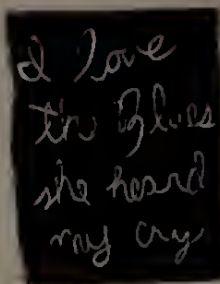 I love
the Blues
she heard
my cry